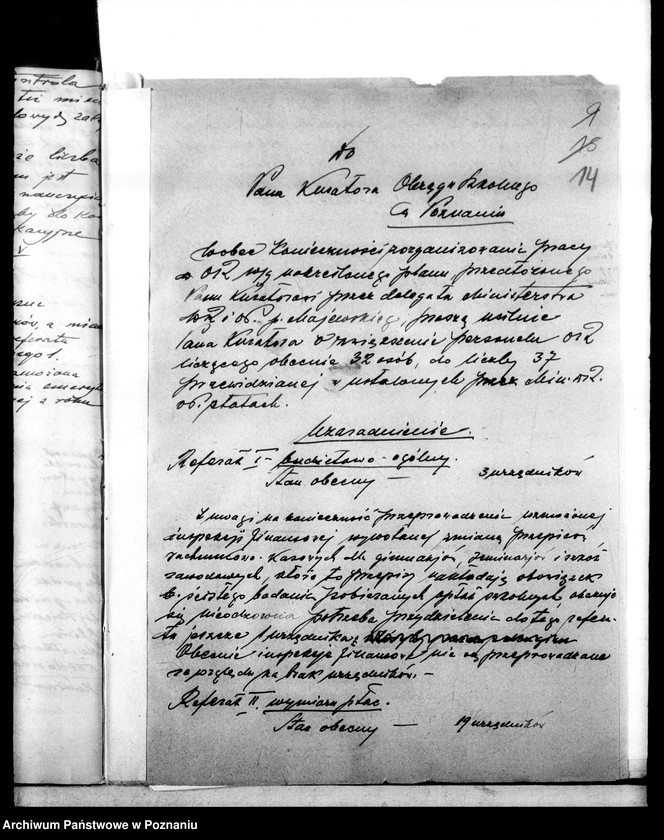 ntrola
tu mies
że liczba
m jest
nauczycie
by do Ko
kacyjne
ków, a mian
referatu
nego 1.
nia emeryt
nej z roku
9
15
14
Do
Pana Kuratora Okręgu Szkolnego
w Poznaniu
Wobec konieczności zorganizowania pracy
w OIZ wg nakreślonego planu, przedłożonego
Panu Kuratorowi przez delegata Ministerstwa
WR i OP. p. Majewskiego, proszę usilnie
Pana Kuratora o zwiększenie personelu OIZ
liczącego obecnie 32 osób, do liczby 37
przewidzianej w ustalonych przez Min. WR.
OP. płatach.
Uzasadnienie.
Referat I – budżetowo-ogólny.
Stan obecny — 3 urzędników
Z uwagi na konieczność przeprowadzenia wzmożonej
inspekcji finansowej wywołanej zmianą przepisów
rachunkowo-kasowych dla gimnazjów, seminarjów i szkół
zawodowych, które to przepisy nakładają obowiązek
b. ścisłego badania pobieranych opłat szkolnych okazuje
się nieodzowna potrzeba przydzielenia do tego refera-
tu jeszcze 1 urzędnika
Obecnie inspekcje finansowe nie są przeprowadzane
ze względu na brak urzędników. –
Referat II. wymiaru płac.
Stan obecny — 19 urzędników
Archiwum Państwowe w Poznaniu